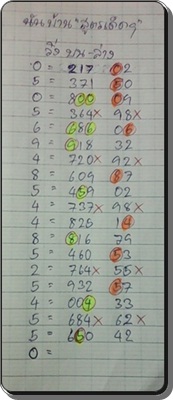 วิ่ง บน-ล่าง
0 = 217 02
5 = 371 50
0 = 800 09
5 = 369× 98×
6 = 686 06
9 = 918 32
4 = 720× 92×
8 = 609 87
5 = 459 02
4 = 737× 98×
4 = 825 14
8 = 816 79
5 = 460 53
2 = 764× 55×
5 = 932 57
4 = 004 33
5 = 684× 62×
5 = 650 42
0 =